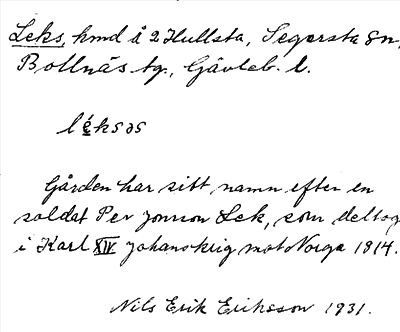 Leks, hmd å 2 Hullsta, Segersta sn,
Bollnäs tg., Gävleb. l.
léksəs
Gården har sitt namn efter en
soldat Per Jonsson Lek, som deltog
i Karl XIV Johans krig mot Norge 1814.
Nils Erik Eriksson 1931.